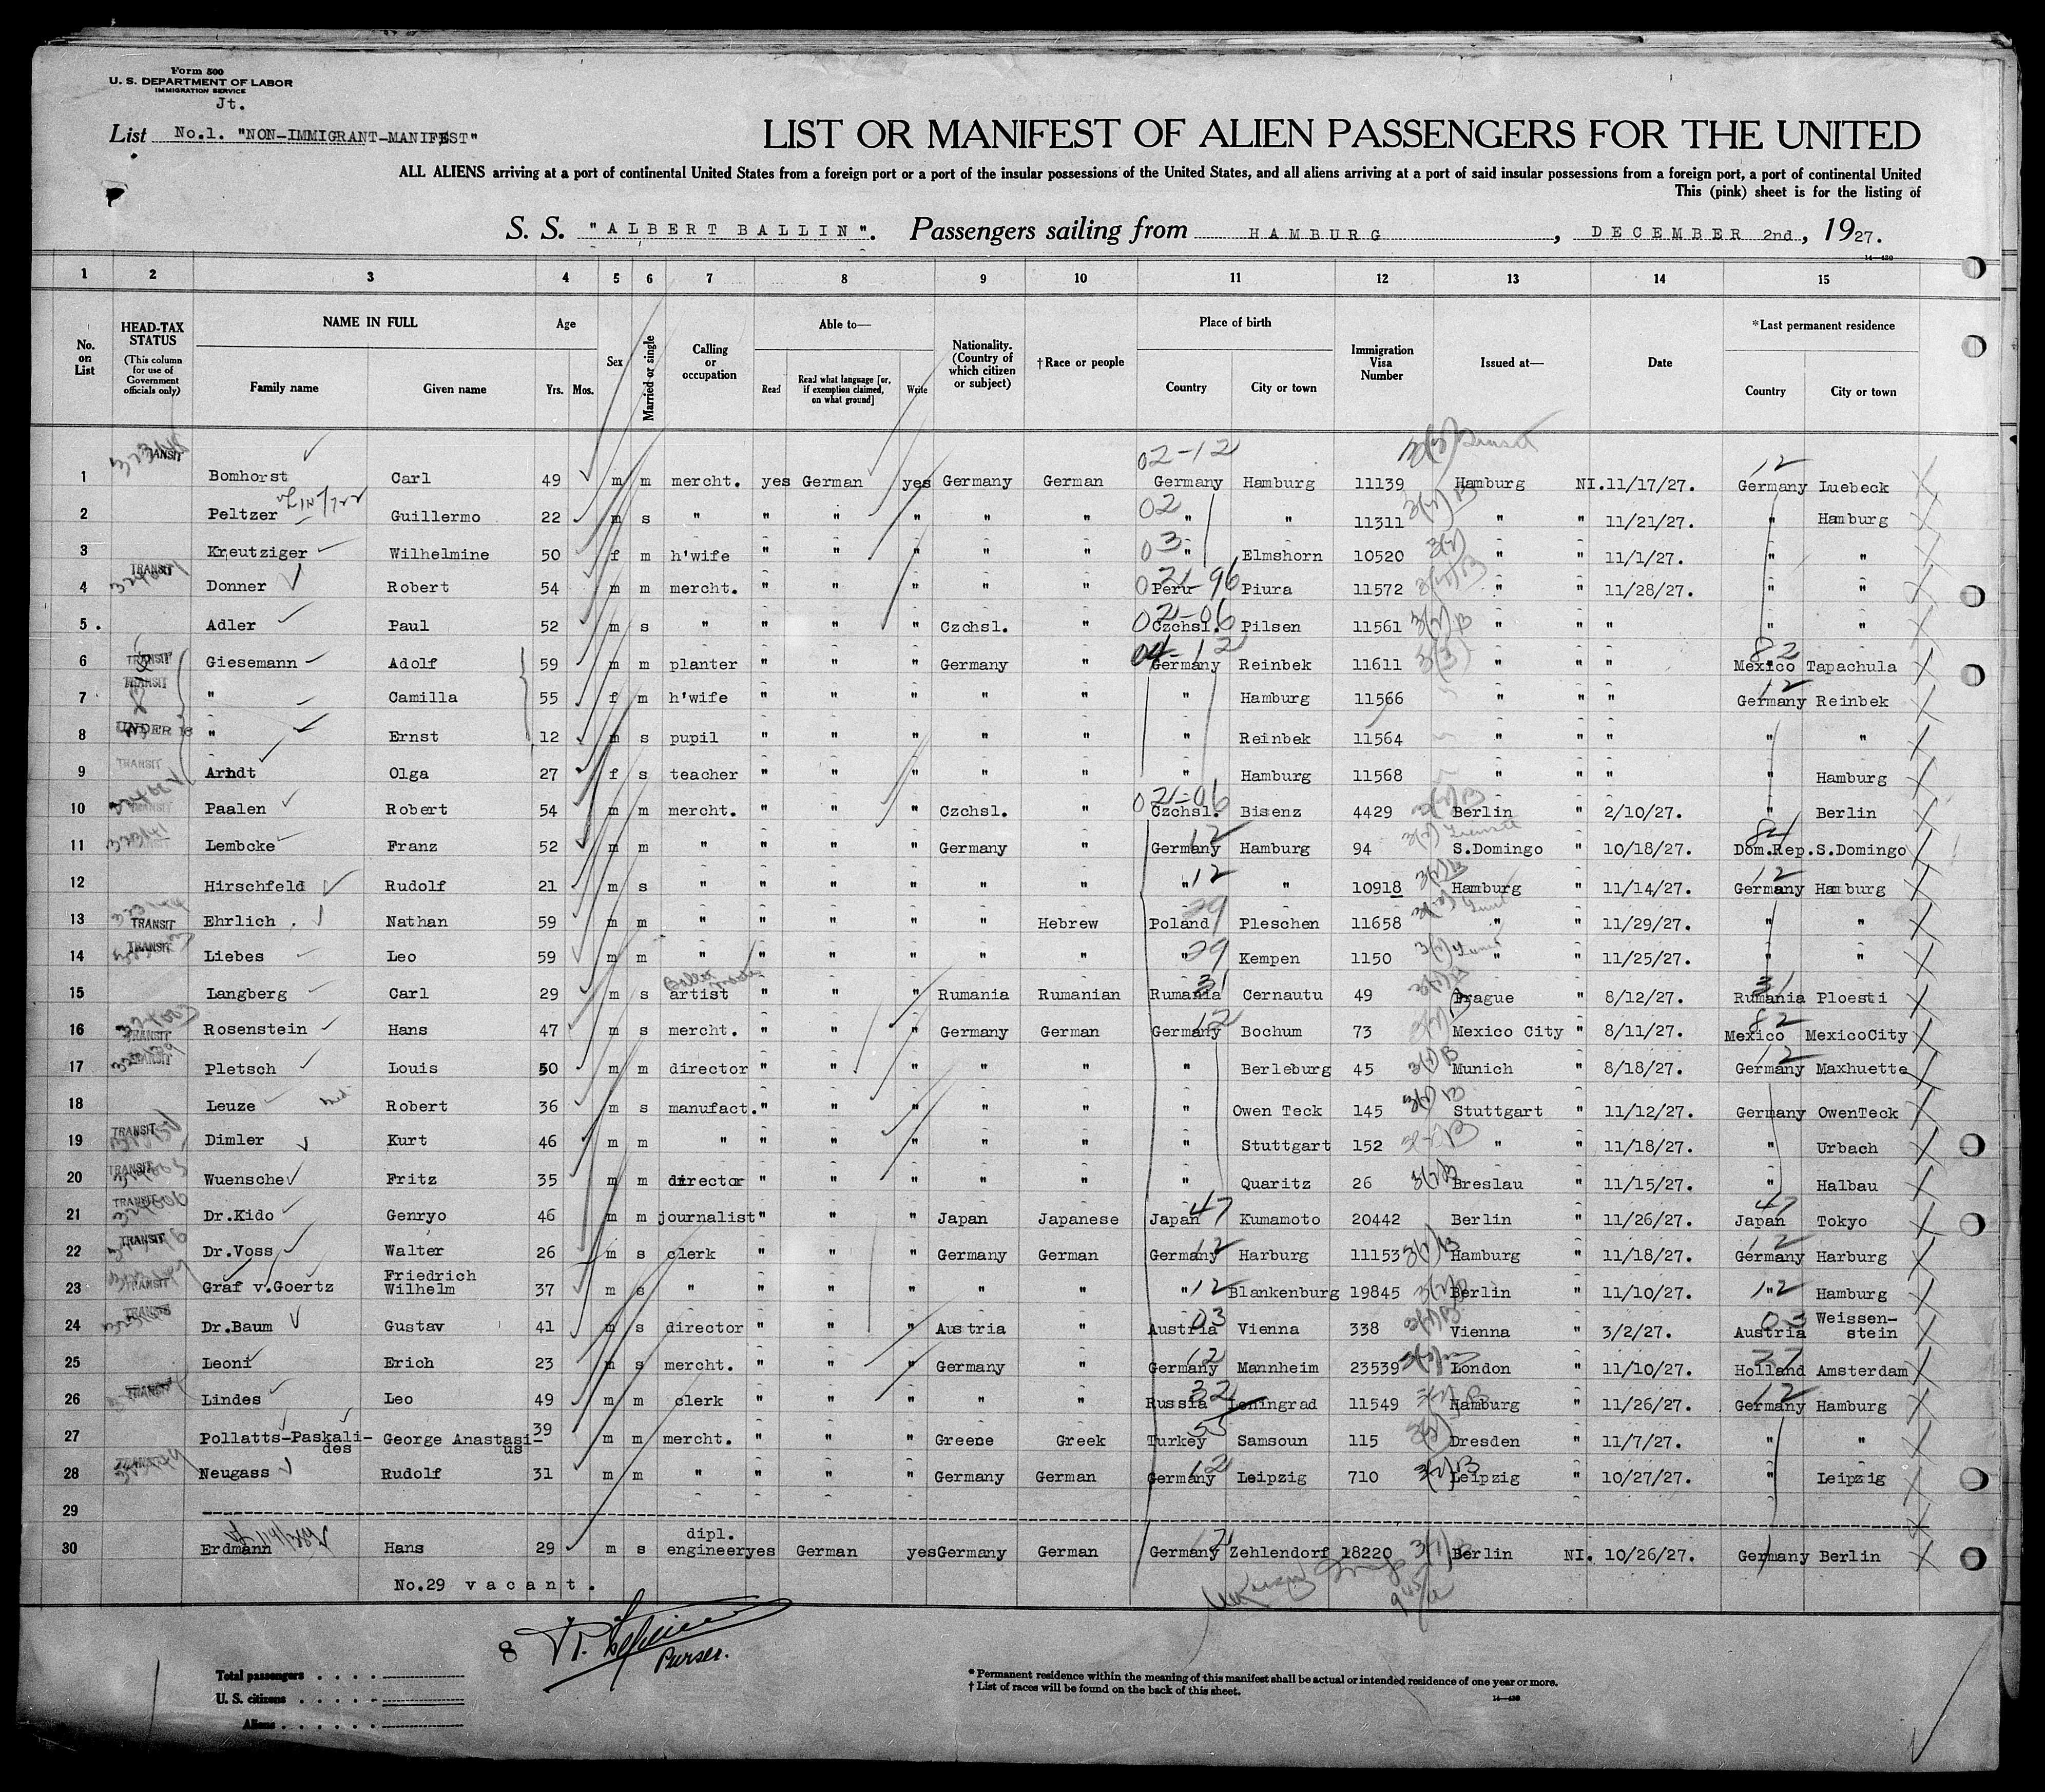 Form 500
U. S. DEPARTMENT OF LABOR
IMMIGRATION SERVICE
Jt.
List No.1. "NON-IMMIGRANT-MANIFEST"
LIST OR MANIFEST OF ALIEN PASSENGERS FOR THE UNITED
ALL ALIENS arriving at a port of continental United States from a foreign port or a port of the insular possessions of the United States, and all aliens arriving at a port of said insular possessions from a foreign port, a port of continental United
This (pink) sheet is for the listing of
S. S. "ALBERT BALLIN". Passengers sailing from HAMBURG, DECEMBER 2nd, 1927.
14—430
1 2 3 4 5 6 7 8 9 10 11 12 13 14 15
No. on List
HEAD-TAX STATUS (This column for use of Government officials only)
NAME IN FULL Family name Given name
Age Yrs. Mos.
Sex
Married or single
Calling or occupation
Able to— Read Read what language [or, if exemption claimed, on what ground] Write
Nationality. (Country of which citizen or subject)
†Race or people
Place of birth Country City or town
Immigration Visa Number
Issued at—
Date
*Last permanent residence Country City or town
1 TRANSIT Bomhorst Carl 49 m m mercht. yes German yes Germany German 02-12 Germany Hamburg 11139 Hamburg NI. 11/17/27. 12 Germany Luebeck
2 Peltzer Guillermo 22 m s " " " " " " 02 " " 11311 " " 11/21/27. " Hamburg
3 Kreutziger Wilhelmine 50 f m h'wife " " " " " 03 " Elmshorn 10520 " " 11/1/27. " "
4 TRANSIT Donner Robert 54 m m mercht. " " " " " Peru Piura 11572 " " 11/28/27. " "
5. Adler Paul 52 m s " " " " Czchsl. " 02-06 Czchsl. Pilsen 11561 " " " " "
6 TRANSIT Giesemann Adolf 59 m m planter " " " Germany " 04-12 Germany Reinbek 11611 " " " 82 Mexico Tapachula
7 TRANSIT " Camilla 55 f m h'wife " " " " " " Hamburg 11566 " " " 12 Germany Reinbek
8 UNDER 16 " Ernst 12 m s pupil " " " " " " Reinbek 11564 " " " " "
9 TRANSIT Arndt Olga 27 f s teacher " " " " " " Hamburg 11568 " " " " Hamburg
10 TRANSIT Paalen Robert 54 m m mercht. " " " Czchsl. " 02-06 Czchsl. Bisenz 4429 Berlin " 2/10/27. " Berlin
11 TRANSIT Lembcke Franz 52 m m " " " " Germany " 12 Germany Hamburg 94 S.Domingo " 10/18/27. Dom.Rep. S.Domingo
12 Hirschfeld Rudolf 21 m s " " " " " " 12 " " 10918 Hamburg " 11/14/27. 12 Germany Hamburg
13 TRANSIT Ehrlich Nathan 59 m m " " " " " Hebrew 29 Poland Pleschen 11658 " " 11/29/27. " "
14 TRANSIT Liebes Leo 59 m m " " " " " " 29 " Kempen 1150 " " 11/25/27. " "
15 Langberg Carl 29 m s artist " " " Rumania Rumanian 31 Rumania Cernautu 49 Prague " 8/12/27. 31 Rumania Ploesti
16 TRANSIT Rosenstein Hans 47 m s mercht. " " " Germany German 12 Germany Bochum 73 Mexico City " 8/11/27. 82 Mexico MexicoCity
17 TRANSIT Pletsch Louis 50 m m director " " " " " " Berleburg 45 Munich " 8/18/27. 12 Germany Maxhuette
18 Leuze Robert 36 m s manufact. " " " " " " Owen Teck 145 Stuttgart " 11/12/27. Germany OwenTeck
19 TRANSIT Dimler Kurt 46 m m " " " " " " " Stuttgart 152 " " 11/18/27. " Urbach
20 TRANSIT Wuensche Fritz 35 m m director " " " " " " Quaritz 26 Breslau " 11/15/27. " Halbau
21 TRANSIT Dr.Kido Genryo 46 m m journalist " " " Japan Japanese 47 Japan Kumamoto 20442 Berlin " 11/26/27. 47 Japan Tokyo
22 TRANSIT Dr.Voss Walter 26 m s clerk " " " Germany German 12 Germany Harburg 11153 Hamburg " 11/18/27. 12 Germany Harburg
23 TRANSIT Graf v.Goertz Friedrich Wilhelm 37 m s " " " " " " " 12 Blankenburg 19845 Berlin " 11/10/27. 12 " Hamburg
24 TRANSIT Dr.Baum Gustav 41 m s director " " " Austria " 03 Austria Vienna 338 Vienna " 3/2/27. 03 Austria Weissenstein
25 Leoni Erich 23 m s mercht. " " " Germany " 12 Germany Mannheim 23539 London " 11/10/27. 27 Holland Amsterdam
26 TRANSIT Lindes Leo 49 m m clerk " " " " " 32 Russia Leningrad 11549 Hamburg " 11/26/27. 12 Germany Hamburg
27 Pollatts-Paskalides George Anastasius 39 m m mercht. " " " Greene Greek 55 Turkey Samsoun 115 Dresden " 11/7/27. " "
28 TRANSIT Neugass Rudolf 31 m m " " " " Germany German 12 Germany Leipzig 710 Leipzig " 10/27/27. " Leipzig
29
30 Erdmann Hans 29 m s dipl. engineer yes German yes Germany German 12 Germany Zehlendorf 18220 Berlin NI. 10/26/27. Germany Berlin
No.29 vacant.
8
Purser.
Total passengers
U. S. citizens
Aliens
* Permanent residence within the meaning of this manifest shall be actual or intended residence of one year or more.
† List of races will be found on the back of this sheet.
14—430